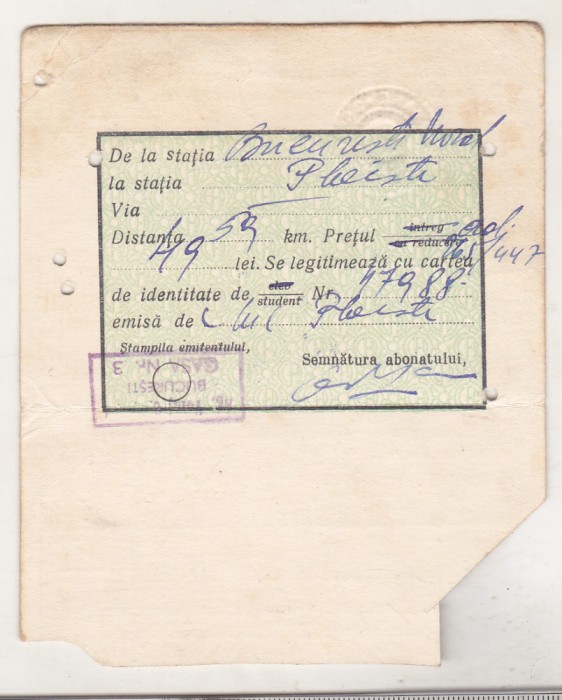 De la stația București Nord
la stația Ploiești
Via —
Distanța 59 km. Prețul întreg cu reducere
49 lei. Se legitimează cu cartea 447
de identitate de elev student Nr. 17988
emisă de Ploiești
Stampila emitentului,
Semnătura abonatului,
BUCUREȘTI
CASA Nr. 3